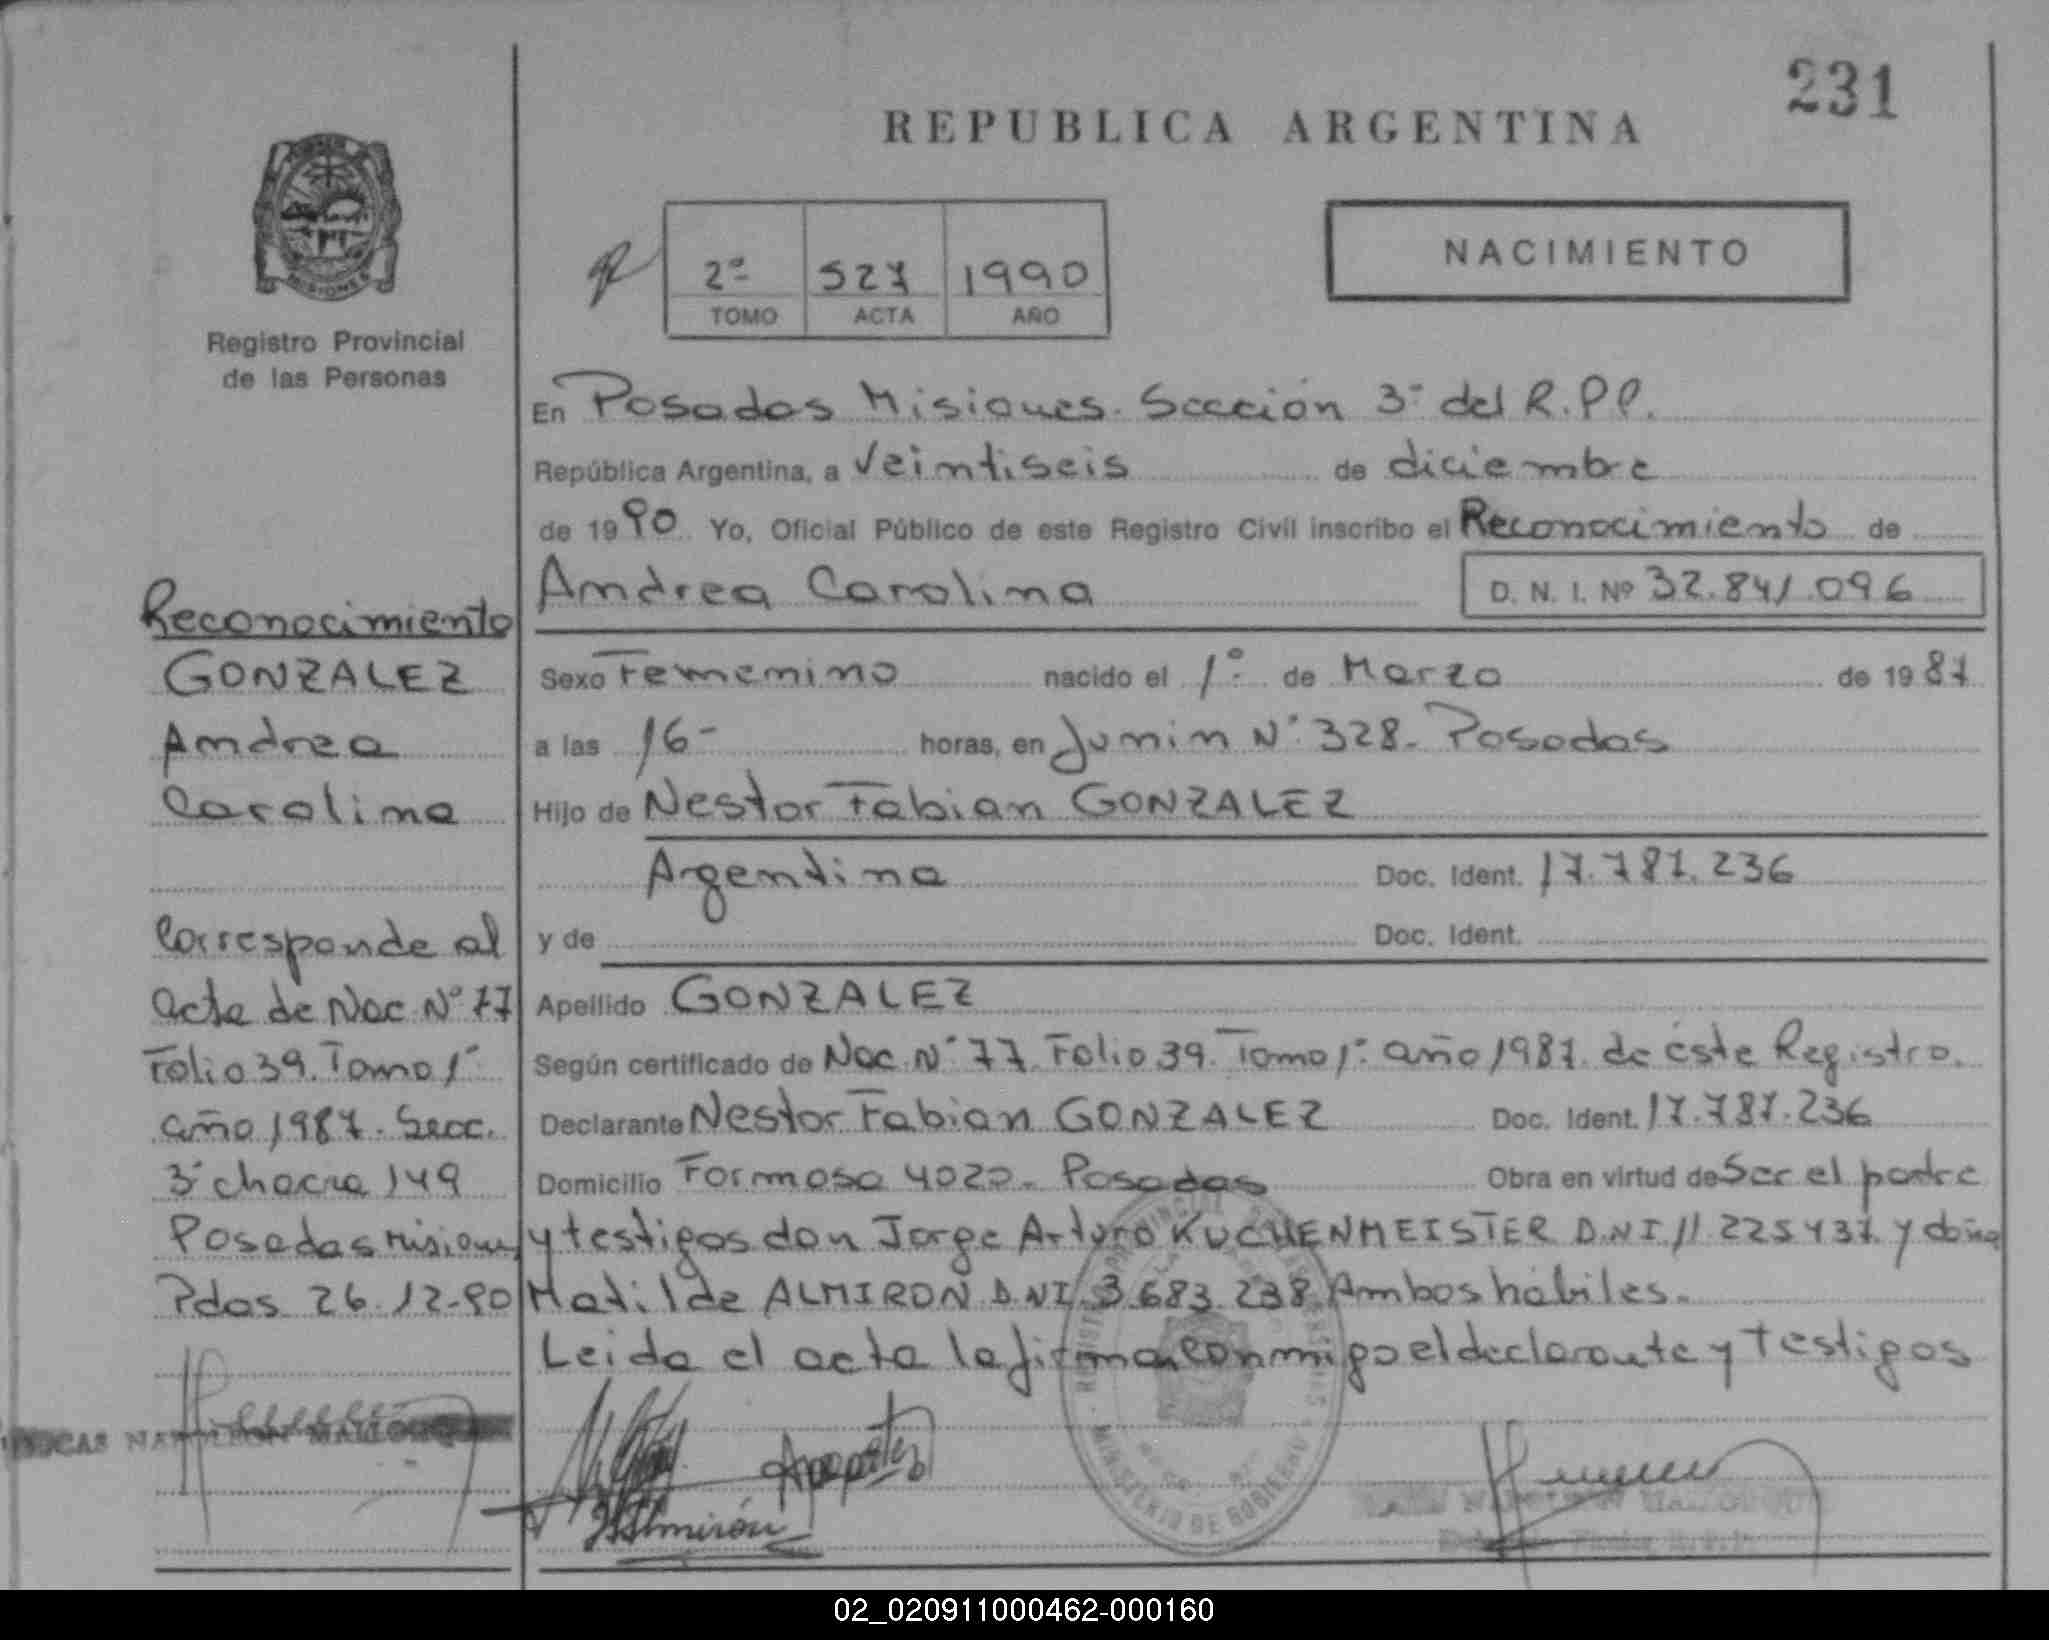 231
REPUBLICA ARGENTINA
MISIONES
Registro Provincial
de las Personas
2º 527 1990
TOMO ACTA AÑO
NACIMIENTO
En Posadas Misiones. Sección 3º del R.P.P.
República Argentina, a Veintiseis de diciembre
de 1990 Yo, Oficial Público de este Registro Civil inscribo el Reconocimiento de
Andrea Carolina D. N. I. Nº 32.841.096
Sexo Femenino nacido el 1º de Marzo de 1987
a las 16- horas, en Junin Nº 328. Posadas
Hijo de Nestor Fabian GONZALEZ
Argentina Doc. Ident. 17.787.236
y de Doc. Ident.
Apellido GONZALEZ
Según certificado de Nac. Nº 77. Folio 39. Tomo 1º año 1987. de éste Registro.
Declarante Nestor Fabian GONZALEZ Doc. Ident. 17.787.236
Domicilio Formosa 4022. Posadas Obra en virtud de Ser el padre
y testigos don Jorge Arturo KUCHENMEISTER D.N.I. 11.225.437. y doña
Matilde ALMIRON D.NI. 3.683.238. Ambos hábiles.
Leida el acta la firman conmigo el declarante y testigos
Reconocimiento
GONZALEZ
Andrea
Carolina
Corresponde al
acta de Nac. Nº 77
Folio 39. Tomo 1º
año 1987. Secc.
3º chacra 149
Posadas Misiones
Pdas 26.12.90
NAPOLEON
Almirón
MINISTERIO DE GOBIERNO
02_020911000462-000160